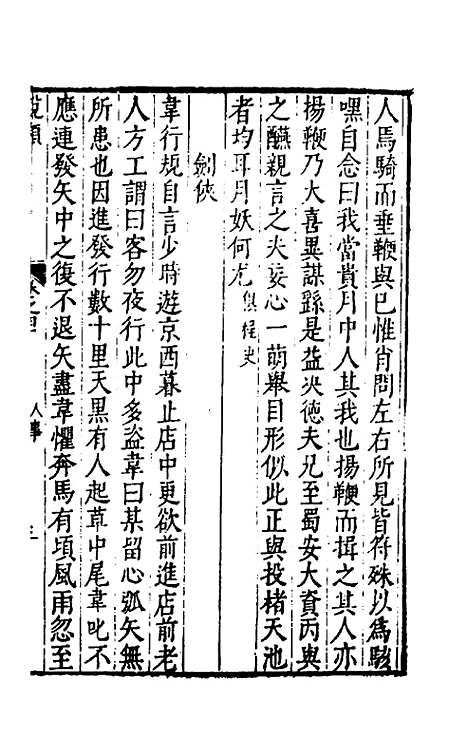 人馬騎而垂鞭與已惟肖問左右所見皆符殊以爲駭
嘿自念曰我當貴月中人其我也揚鞭而揖之其人亦
揚鞭乃大喜異謀繇是益決徳夫兄至蜀安大資丙與
之醼親言之夫妄心一萌舉目形似此正與投楮天池
者均耳月妖何尤
劍俠
韋行規自言少時遊京西暮止店中更欲前進店前老
人方工謂曰客勿夜行此中多盜韋曰某留心弧矢無
所患也因進發行數十里天黑有人起草中尾韋叱不
應連發矢中之復不退矢盡韋懼奔馬有頃風雨忽至
卷之四 人事 三